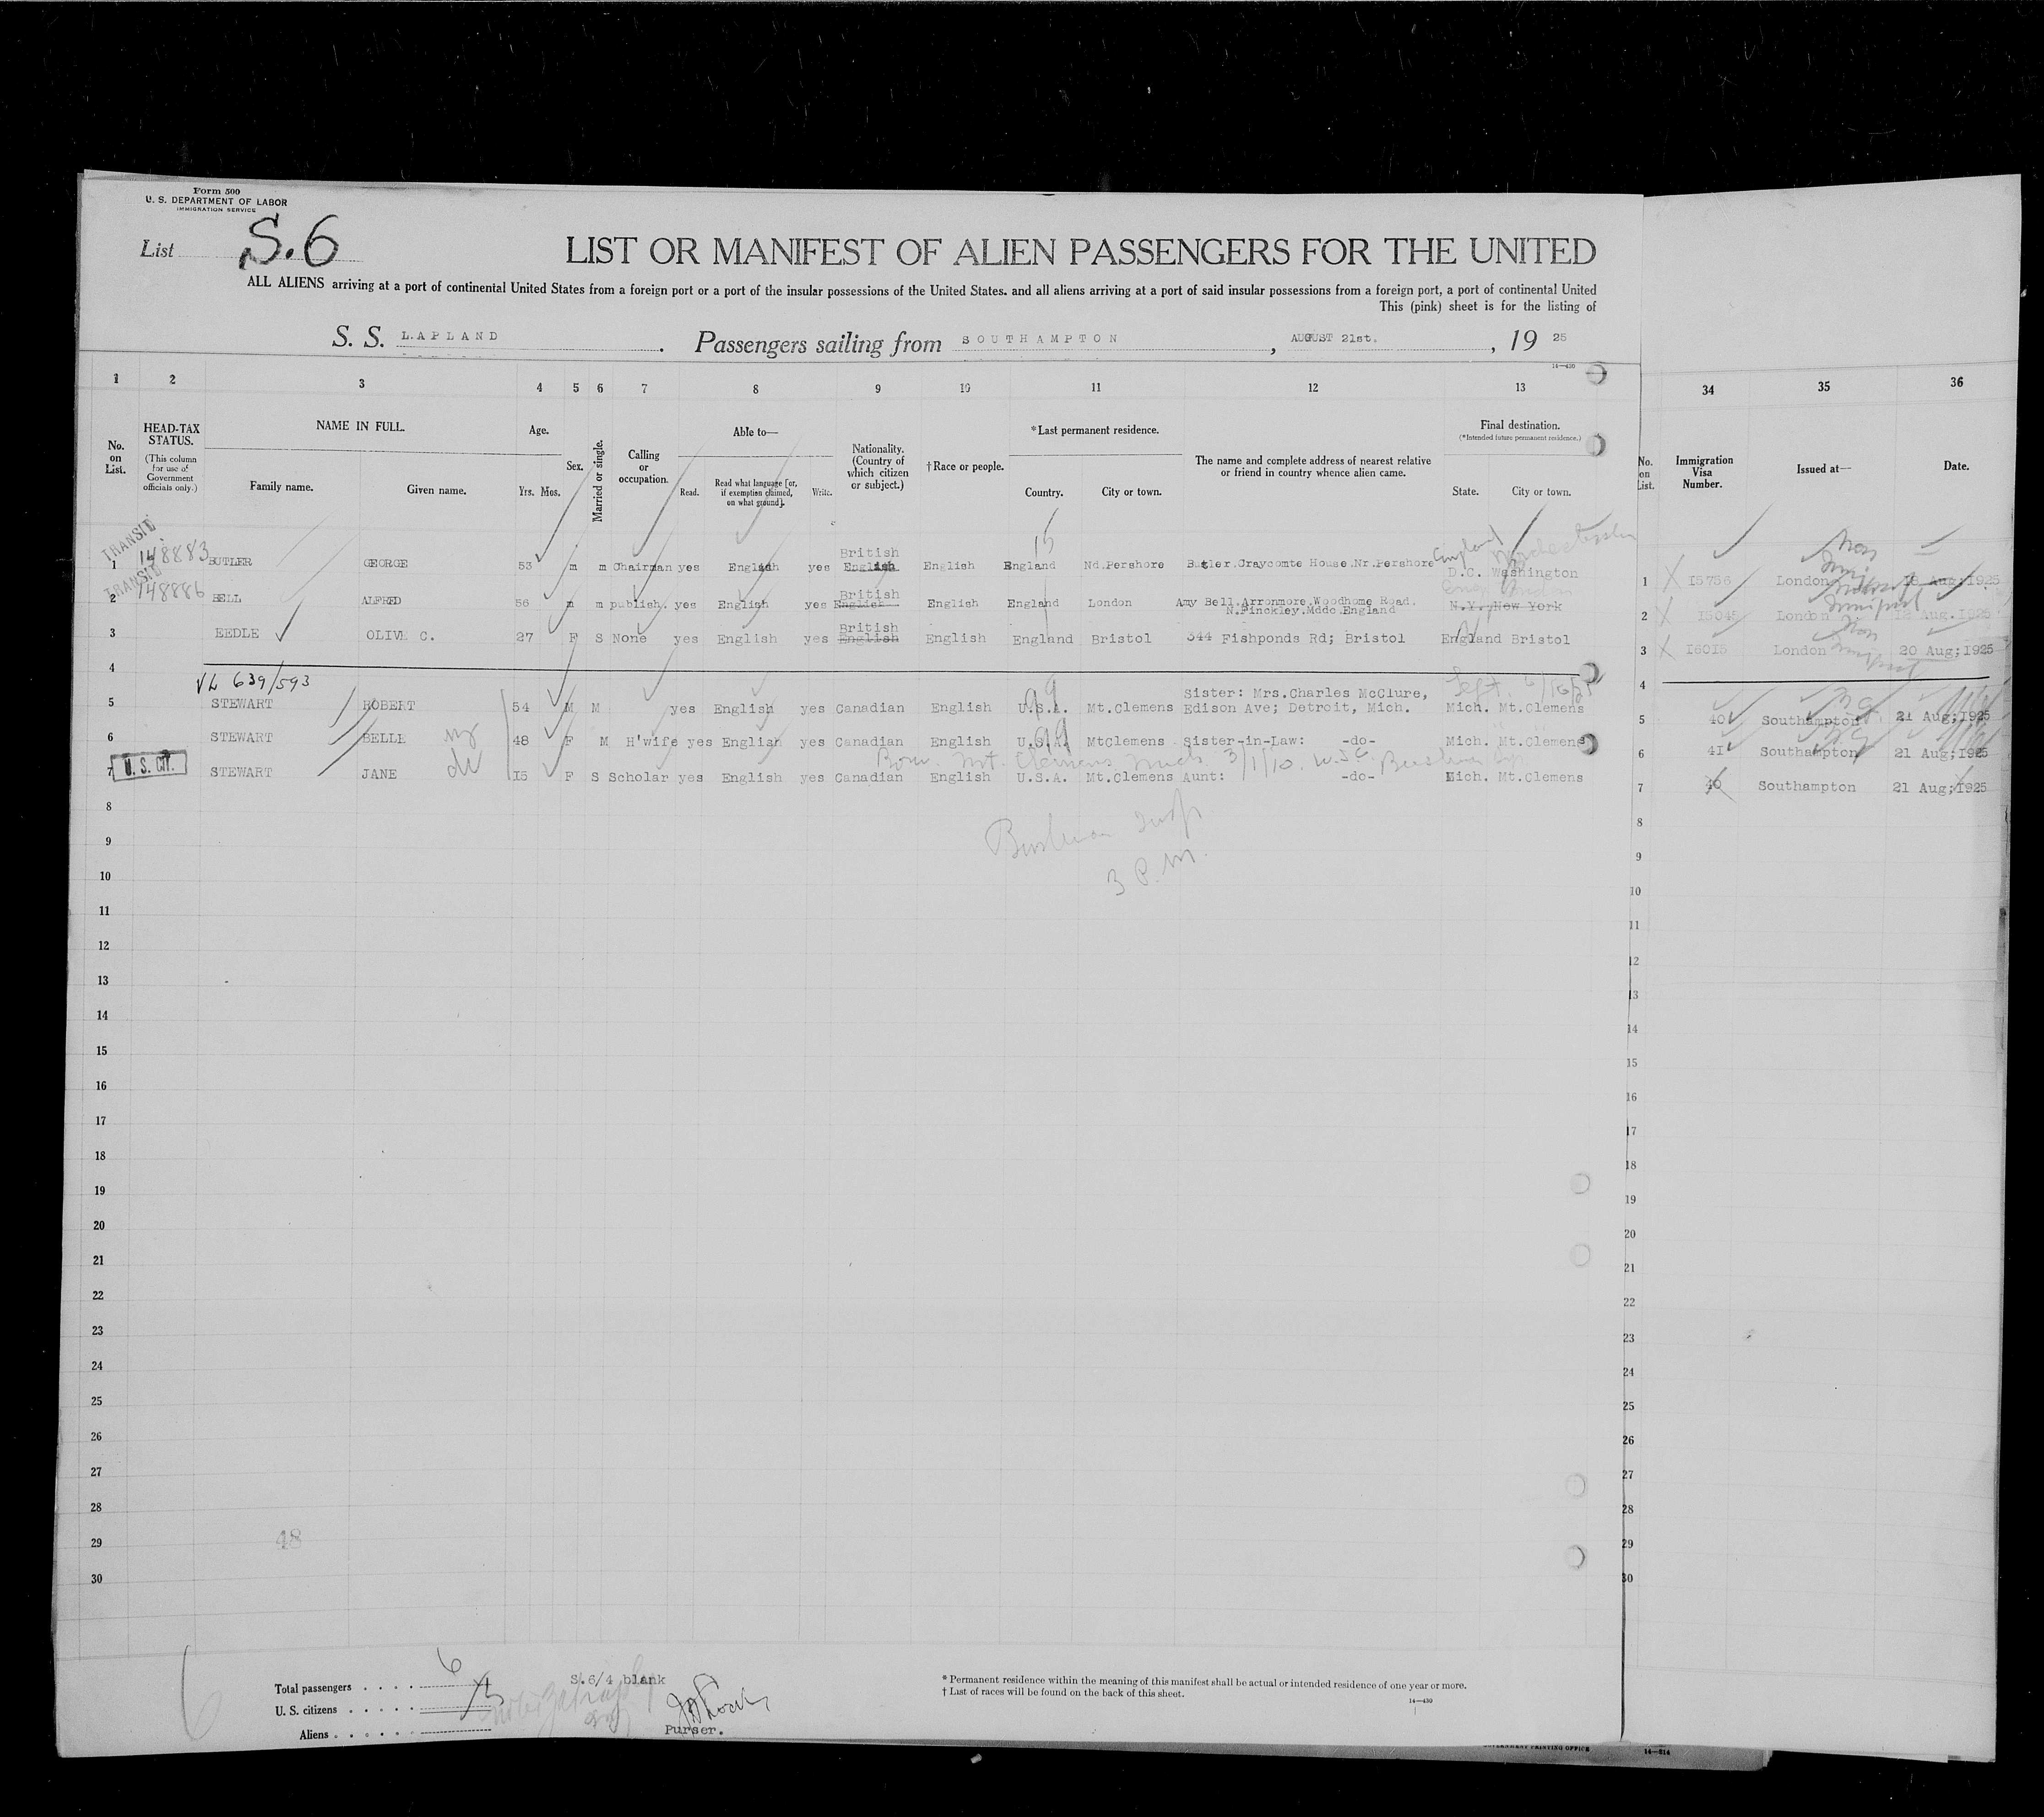 Form 500
U. S. DEPARTMENT OF LABOR
IMMIGRATION SERVICE
List S.6
LIST OR MANIFEST OF ALIEN PASSENGERS FOR THE UNITED
ALL ALIENS arriving at a port of continental United States from a foreign port or a port of the insular possessions of the United States, and all aliens arriving at a port of said insular possessions from a foreign port, a port of continental United
This (pink) sheet is for the listing of
S. S. LAPLAND. Passengers sailing from SOUTHAMPTON, AUGUST 21st., 19 25
14—430
1 2 3 4 5 6 7 8 9 10 11 12 13 34 35 36
No. on List.
HEAD-TAX STATUS.
(This column for use of Government officials only.)
NAME IN FULL.
Family name. Given name.
Age.
Yrs. Mos.
Sex.
Married or single.
Calling or occupation.
Able to—
Read. Read what language [or, if exemption claimed, on what ground]. Write.
Nationality. (Country of which citizen or subject.)
†Race or people.
*Last permanent residence.
Country. City or town.
The name and complete address of nearest relative or friend in country whence alien came.
Final destination.
(*Intended future permanent residence.)
State. City or town.
No. on List.
Immigration Visa Number.
Issued at—
Date.
TRANSIT 148883
England
1 BUTLER GEORGE 53 m m Chairman yes English yes British English English England Nd.Pershore Butler.Craycomte House.Nr.Pershore D.C. Washington 1 15756 London 18 Aug;1925
TRANSIT 148886
2 BELL ALFRED 56 m m publish. yes English yes British English English England London Amy Bell.Arronmore.Woodhome Road. N.Finckley.Mddo.England N.Y. New York 2 15045 London Aug.1925
3 EEDLE OLIVE C. 27 F S None yes English yes British English English England Bristol 344 Fishponds Rd; Bristol England Bristol 3 16015 London 20 Aug;1925
4 4
VL 639/593
5 STEWART ROBERT 54 M M yes English yes Canadian English U.S.A. Mt.Clemens Sister: Mrs.Charles McClure, Edison Ave; Detroit, Mich. Mich. Mt.Clemens 5 40 Southampton 21 Aug;1925
6 STEWART BELLE 48 F M H'wife yes English yes Canadian English U.S.A. MtClemens Sister-in-Law: -do- Mich. Mt.Clemens 6 41 Southampton 21 Aug;1925
Born Mt. Clemens Mich. 3/1/10.
U. S. CIT.
7 STEWART JANE 15 F S Scholar yes English yes Canadian English U.S.A. Mt.Clemens Aunt: -do- Mich. Mt.Clemens 7 40 Southampton 21 Aug;1925
8 8
9 9
3 P.M.
10 10
11 11
12 12
13 13
14 14
15 15
16 16
17 17
18 18
19 19
20 20
21 21
22 22
23 23
24 24
25 25
26 26
27 27
28 28
48
29 29
30 30
Total passengers 6
U. S. citizens
Aliens
S.6/4 blank
Purser.
* Permanent residence within the meaning of this manifest shall be actual or intended residence of one year or more.
† List of races will be found on the back of this sheet.
14—430
GOVERNMENT PRINTING OFFICE
14—814